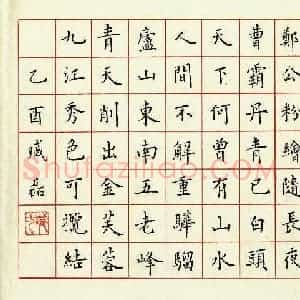 鄭公粉繪隨長夜
曹霸丹青已白頭
天下何曾有山水
人間不解重驊騮
廬山東南五老峰
青天削出金芙蓉
九江秀色可攬結
乙酉磊
Shufaziliao.com